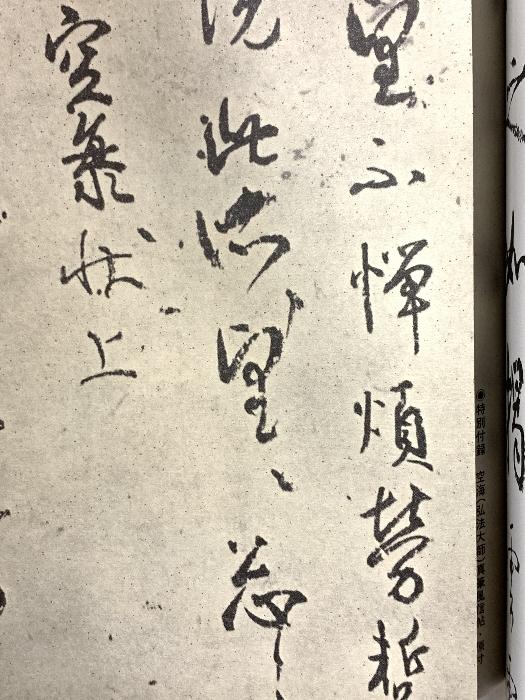 ◉特別付録 空海(弘法大師)真筆風信帖・原寸
望不憚煩勞蹔
院此所望々忩々
空海状上